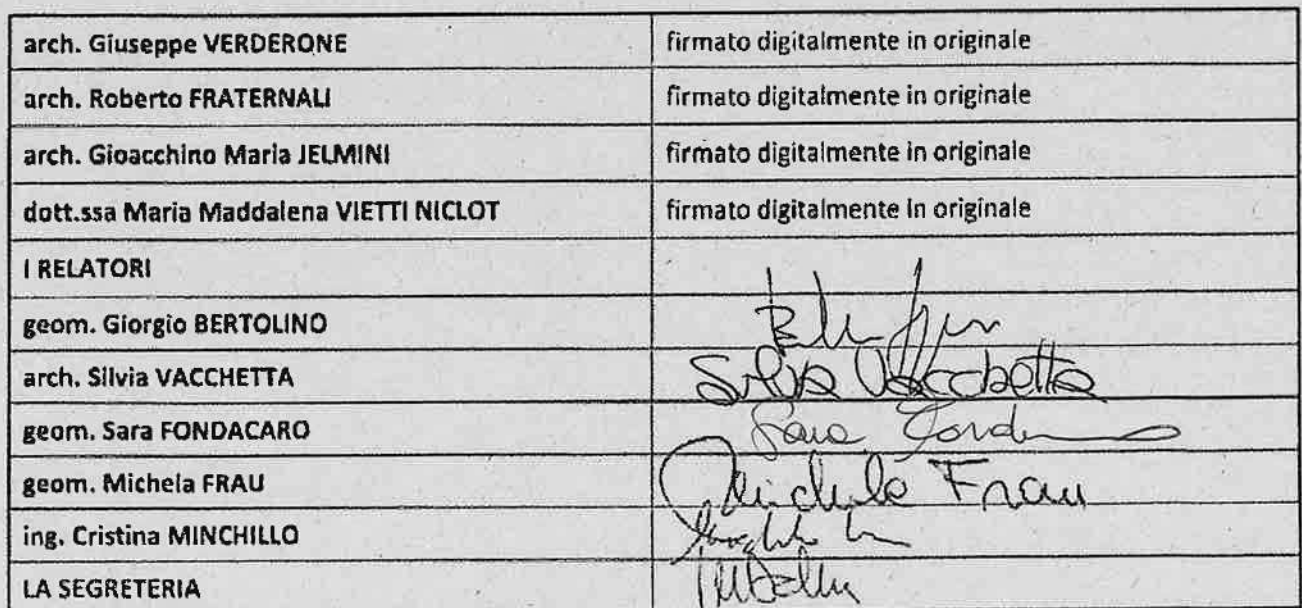 arch. Giuseppe VERDERONE firmato digitalmente in originale
arch. Roberto FRATERNALI firmato digitalmente in originale
arch. Gioacchino Maria JELMINI firmato digitalmente in originale
dott.ssa Maria Maddalena VIETTI NICLOT firmato digitalmente in originale
I RELATORI
geom. Giorgio BERTOLINO
arch. Silvia VACCHETTA Silvia Vacchetta
geom. Sara FONDACARO Sara
geom. Michela FRAU Michela Frau
ing. Cristina MINCHILLO
LA SEGRETERIA